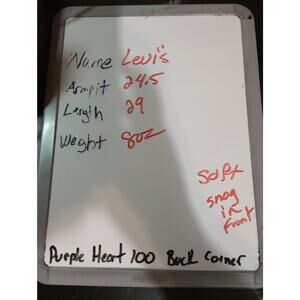 Name Levi's
Armpit 24.5
Length 29
Weght 8oz
Soft
snag
in
Front
Purple Heart 100 Buck Corner